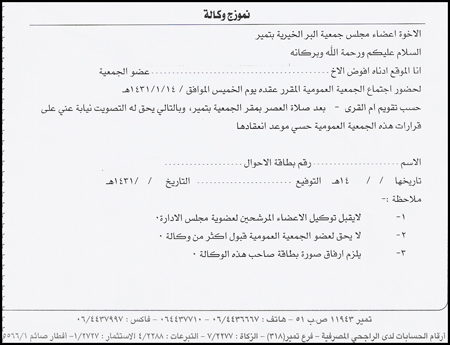 نموزج وكالة
الاخوة اعضاء مجلس جمعية البر الخيرية بتمير
السلام عليكم ورحمة الله وبركاته
انا الموقع ادناه افوض الاخ ............................ عضو الجمعية
لحضور اجتماع الجمعية العمومية المقرر عقده يوم الخميس الموافق / ١٤٣١/١/١٤هـ
حسب تقويم ام القرى - بعد صلاة العصر بمقر الجمعية بتمير، وبالتالي يحق له التصويت نيابة عني على
قرارات هذه الجمعية العمومية حسي موعد انعقادها
الاسم ............................ رقم بطاقة الاحوال ....................
تاريخها / / ١٤هـ التوقيع .................... التاريخ / / ١٤٣١هـ
ملاحظة :-
١- لايقبل توكيل الاعضاء المرشحين لعضوية مجلس الادارة ٠
٢- لا يحق لعضو الجمعية العمومية قبول اكثر من وكالة ٠
٣- يلزم ارفاق صورة بطاقة صاحب هذه الوكالة ٠
تمير ١١٩٤٣ ص.ب ٥١ - هاتف : ٠٦/٤٤٣٦٦٦٧ - ٠٦٤٤٣٧٧١٠ - فاكس : ٠٦/٤٤٣٧٩٩٧
أرقام الحسابات لدى الراجحي المصرفية - فرع تمير (٣١٨) - الزكاة : ٧/٢٢٧٧ - التبرعات : ٤/٢٢٨٨ الاستثمار : ١/٢٧٢٧ - افطار صائم ٥٥٦٦/١